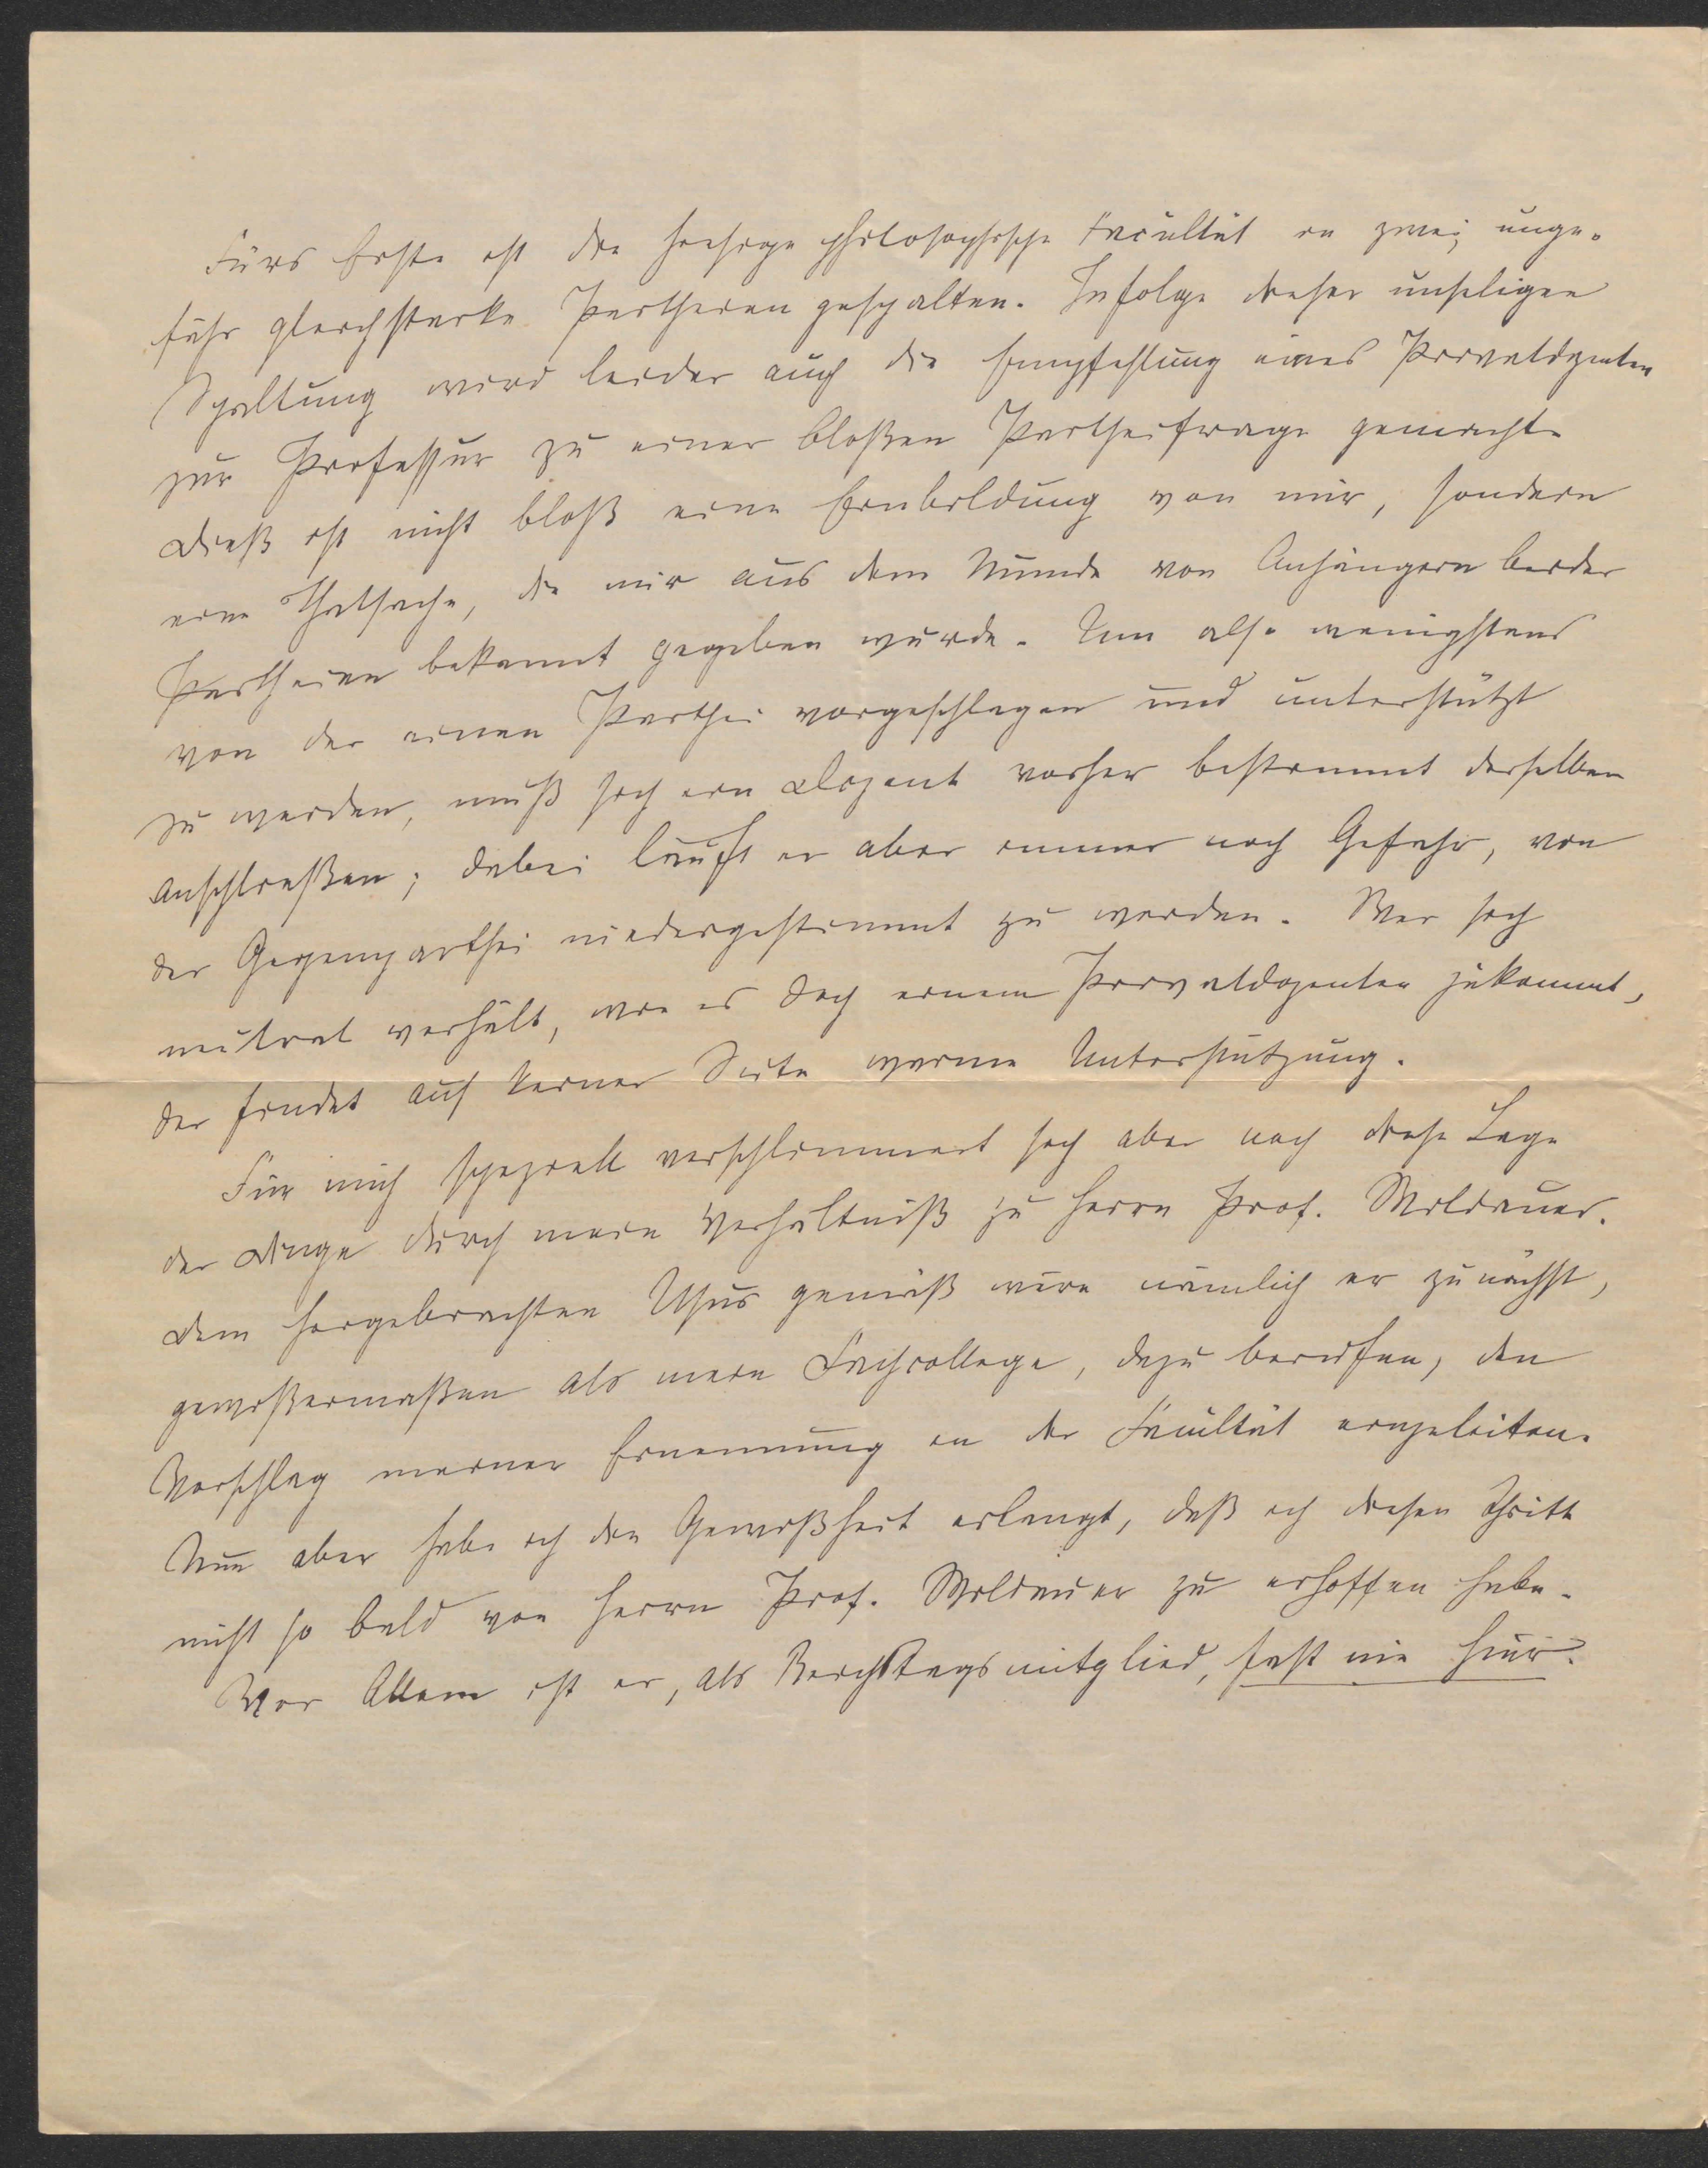 Fürs Erste ist die hiesige philosophische Facultät in zwei unge-
fähr gleichstarke Partheien gespalten. Infolge dieser unseligen
Spaltung wird leider auch die Empfehlung eines Privatdozenten
zur Professur zu einer bloßen Partheifrage gemacht.
Dieß ist nicht bloß eine Einbildung von mir, sondern
eine Thatsache, die mir aus dem Munde von Anhängern beider
Partheien bekannt gegeben wurde. Um also wenigstens
von der einen Parthei vorgeschlagen und unterstützt
zu werden, muß sich ein Dozent vorher bestimmt derselben
anschließen; dabei läuft er aber immer noch Gefahr, von
der Gegenparthei niedergestimmt zu werden. Wer sich
neutral verhält, wie es doch einem Privatdozenten zukommt,
der findet auf keiner Seite warme Unterstützung.
Für mich speziell verschlimmert sich aber noch diese Lage
der Dinge durch mein Verhältniß zu Herrn Prof. Moldauer.
Dem hergebrachten Usus gemäß wäre nämlich er zunächst,
gewißermaßen als mein Fachcollege, dazu berufen, den
Vorschlag meiner Ernennung in der Facultät einzuleiten.
Nun aber habe ich die Gewißheit erlangt, daß ich diesen Schritt
nicht so bald von Herrn Prof. Moldauer zu erhoffen habe.
Vor Allem ist er, als Reichstagsmitglied, fast nie hier.